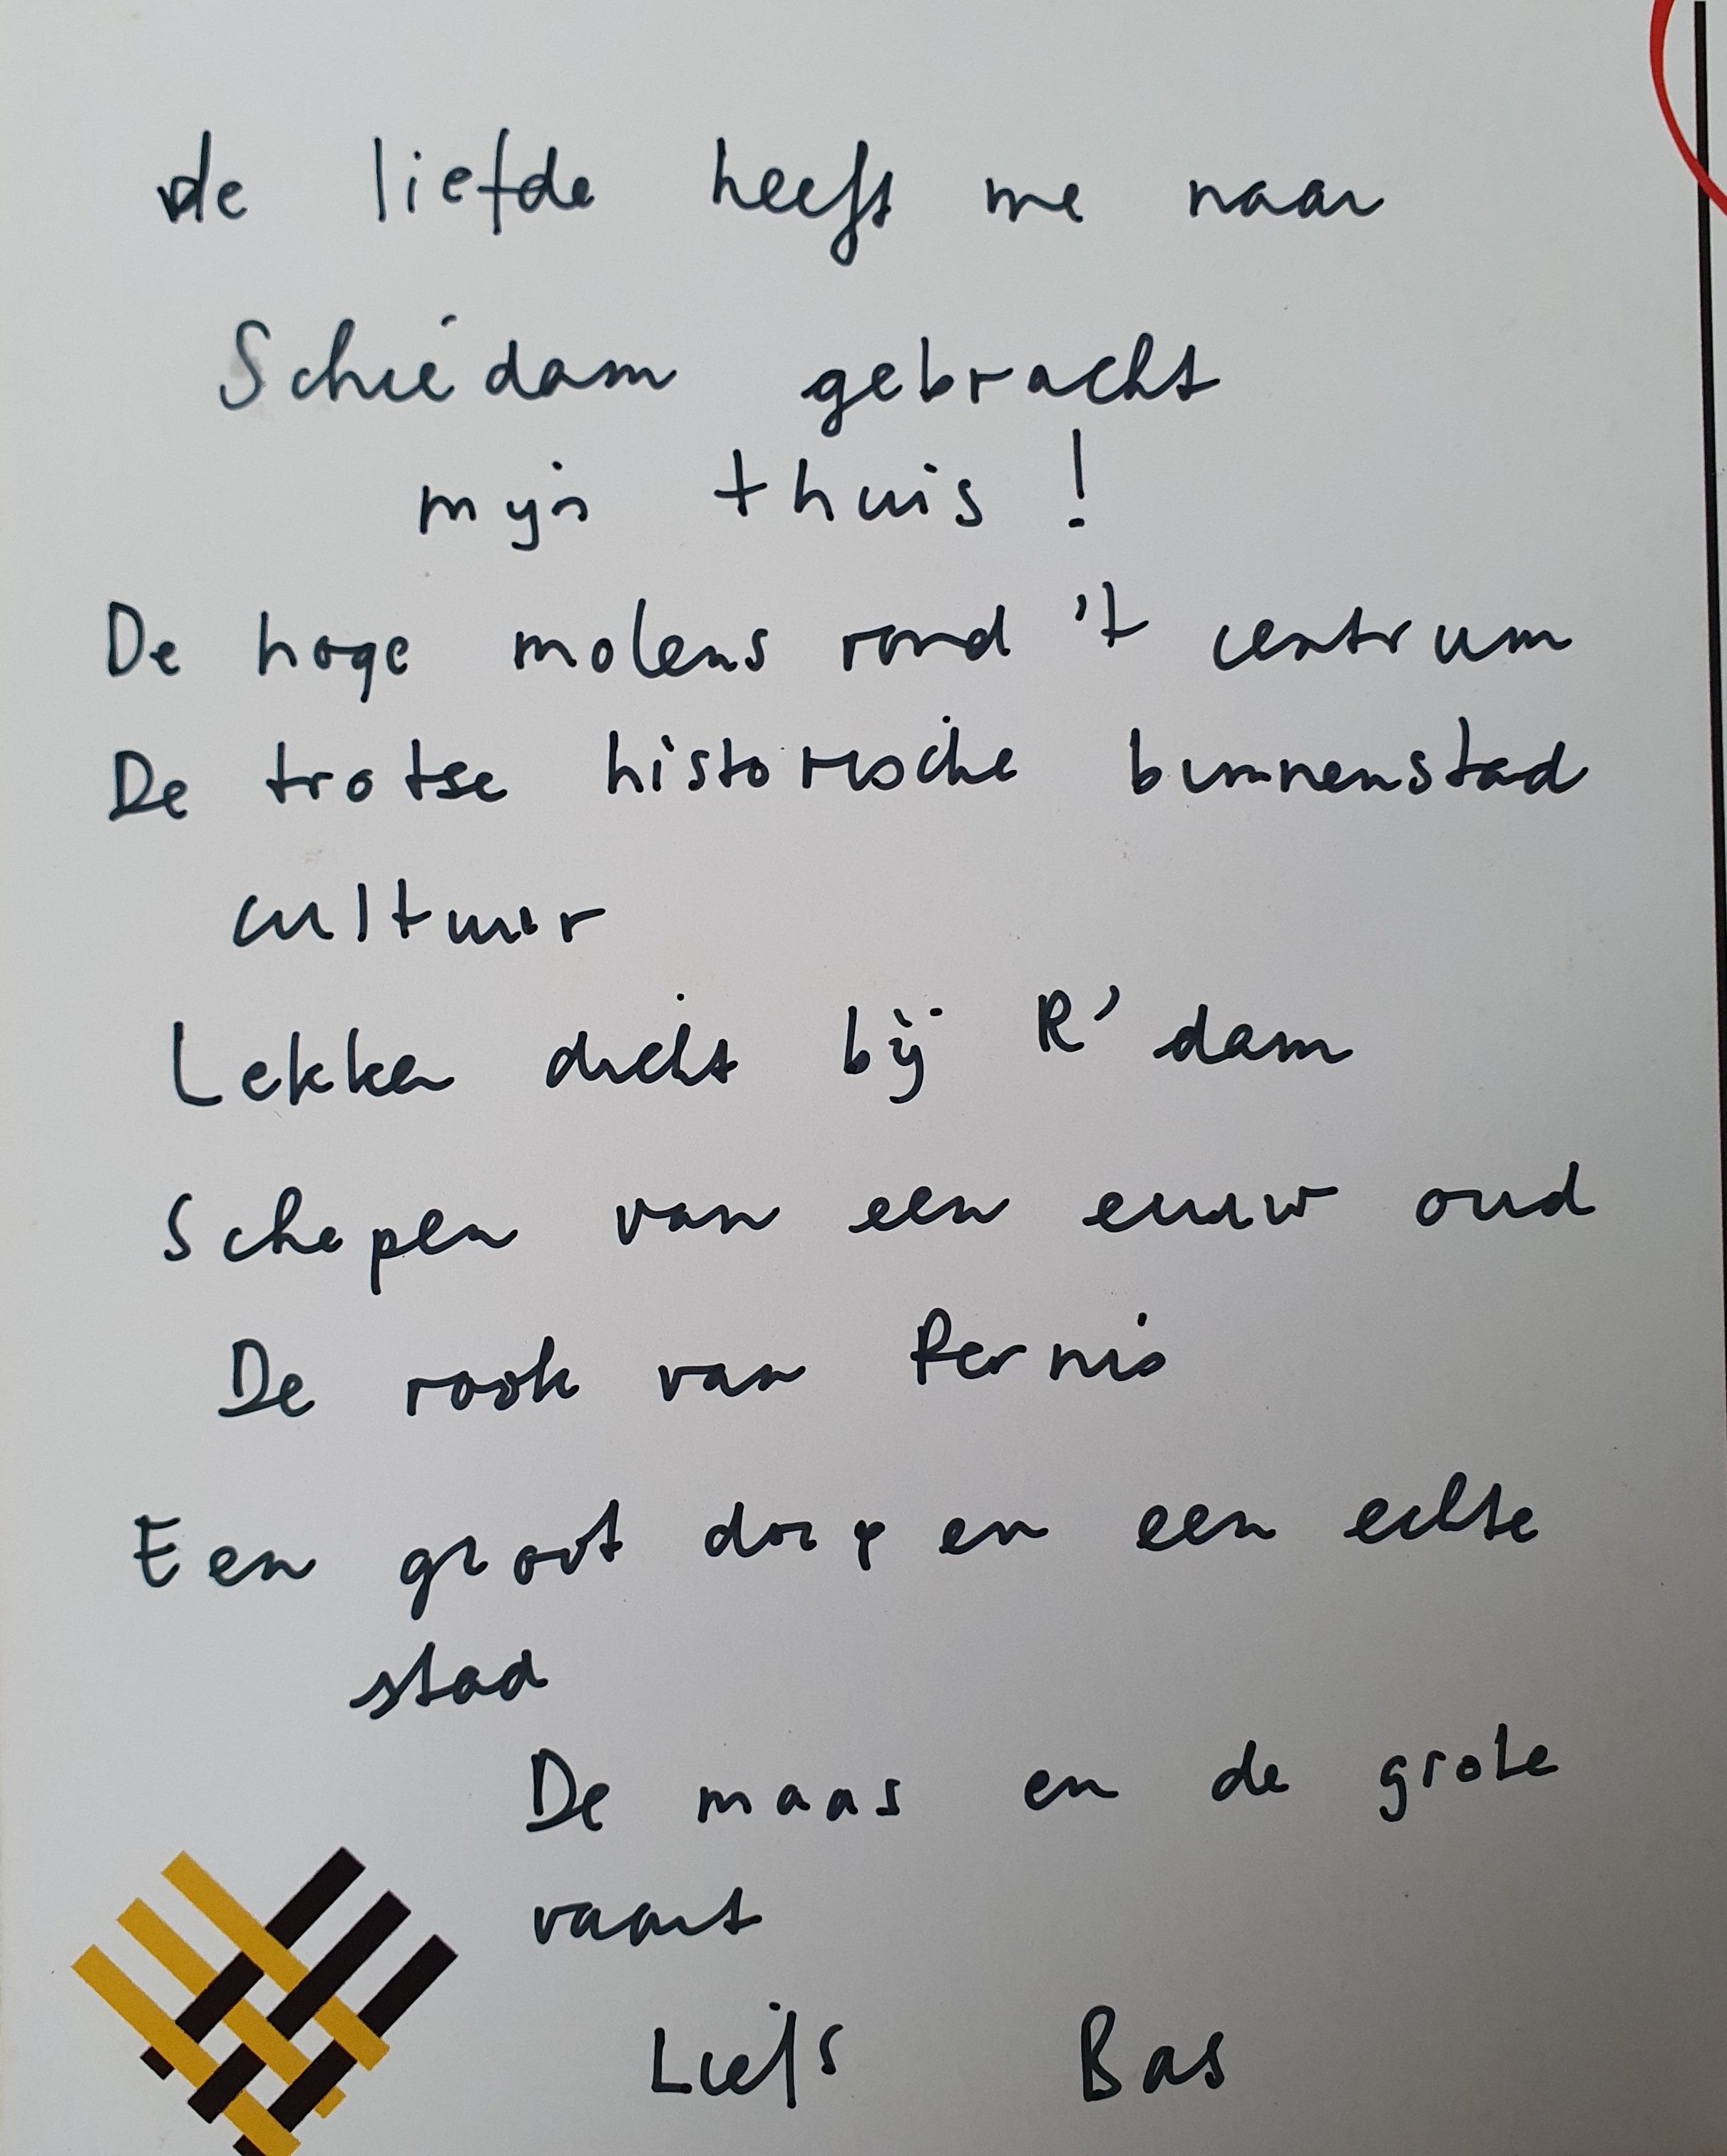 de liefde heeft me naar
Schiedam gebracht
mijn thuis !
De hoge molens rond 't centrum
De trotse historische binnenstad
cultuur
Lekker dicht bij R'dam
Schepen van een eeuw oud
De rook van Pernis
Een groot dorp en een echte
stad
De maas en de grote
vaart
Liefs Bas